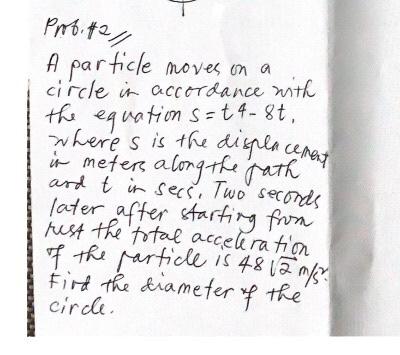 Prob. #2//
A particle moves on a
circle in accordance with
the equation s = t4 - 8t,
where s is the displacement
in meters along the path
and t in secs. Two seconds
later after starting from
rest the total acceleration
of the particle is 48√2 m/s².
Find the diameter of the
circle.